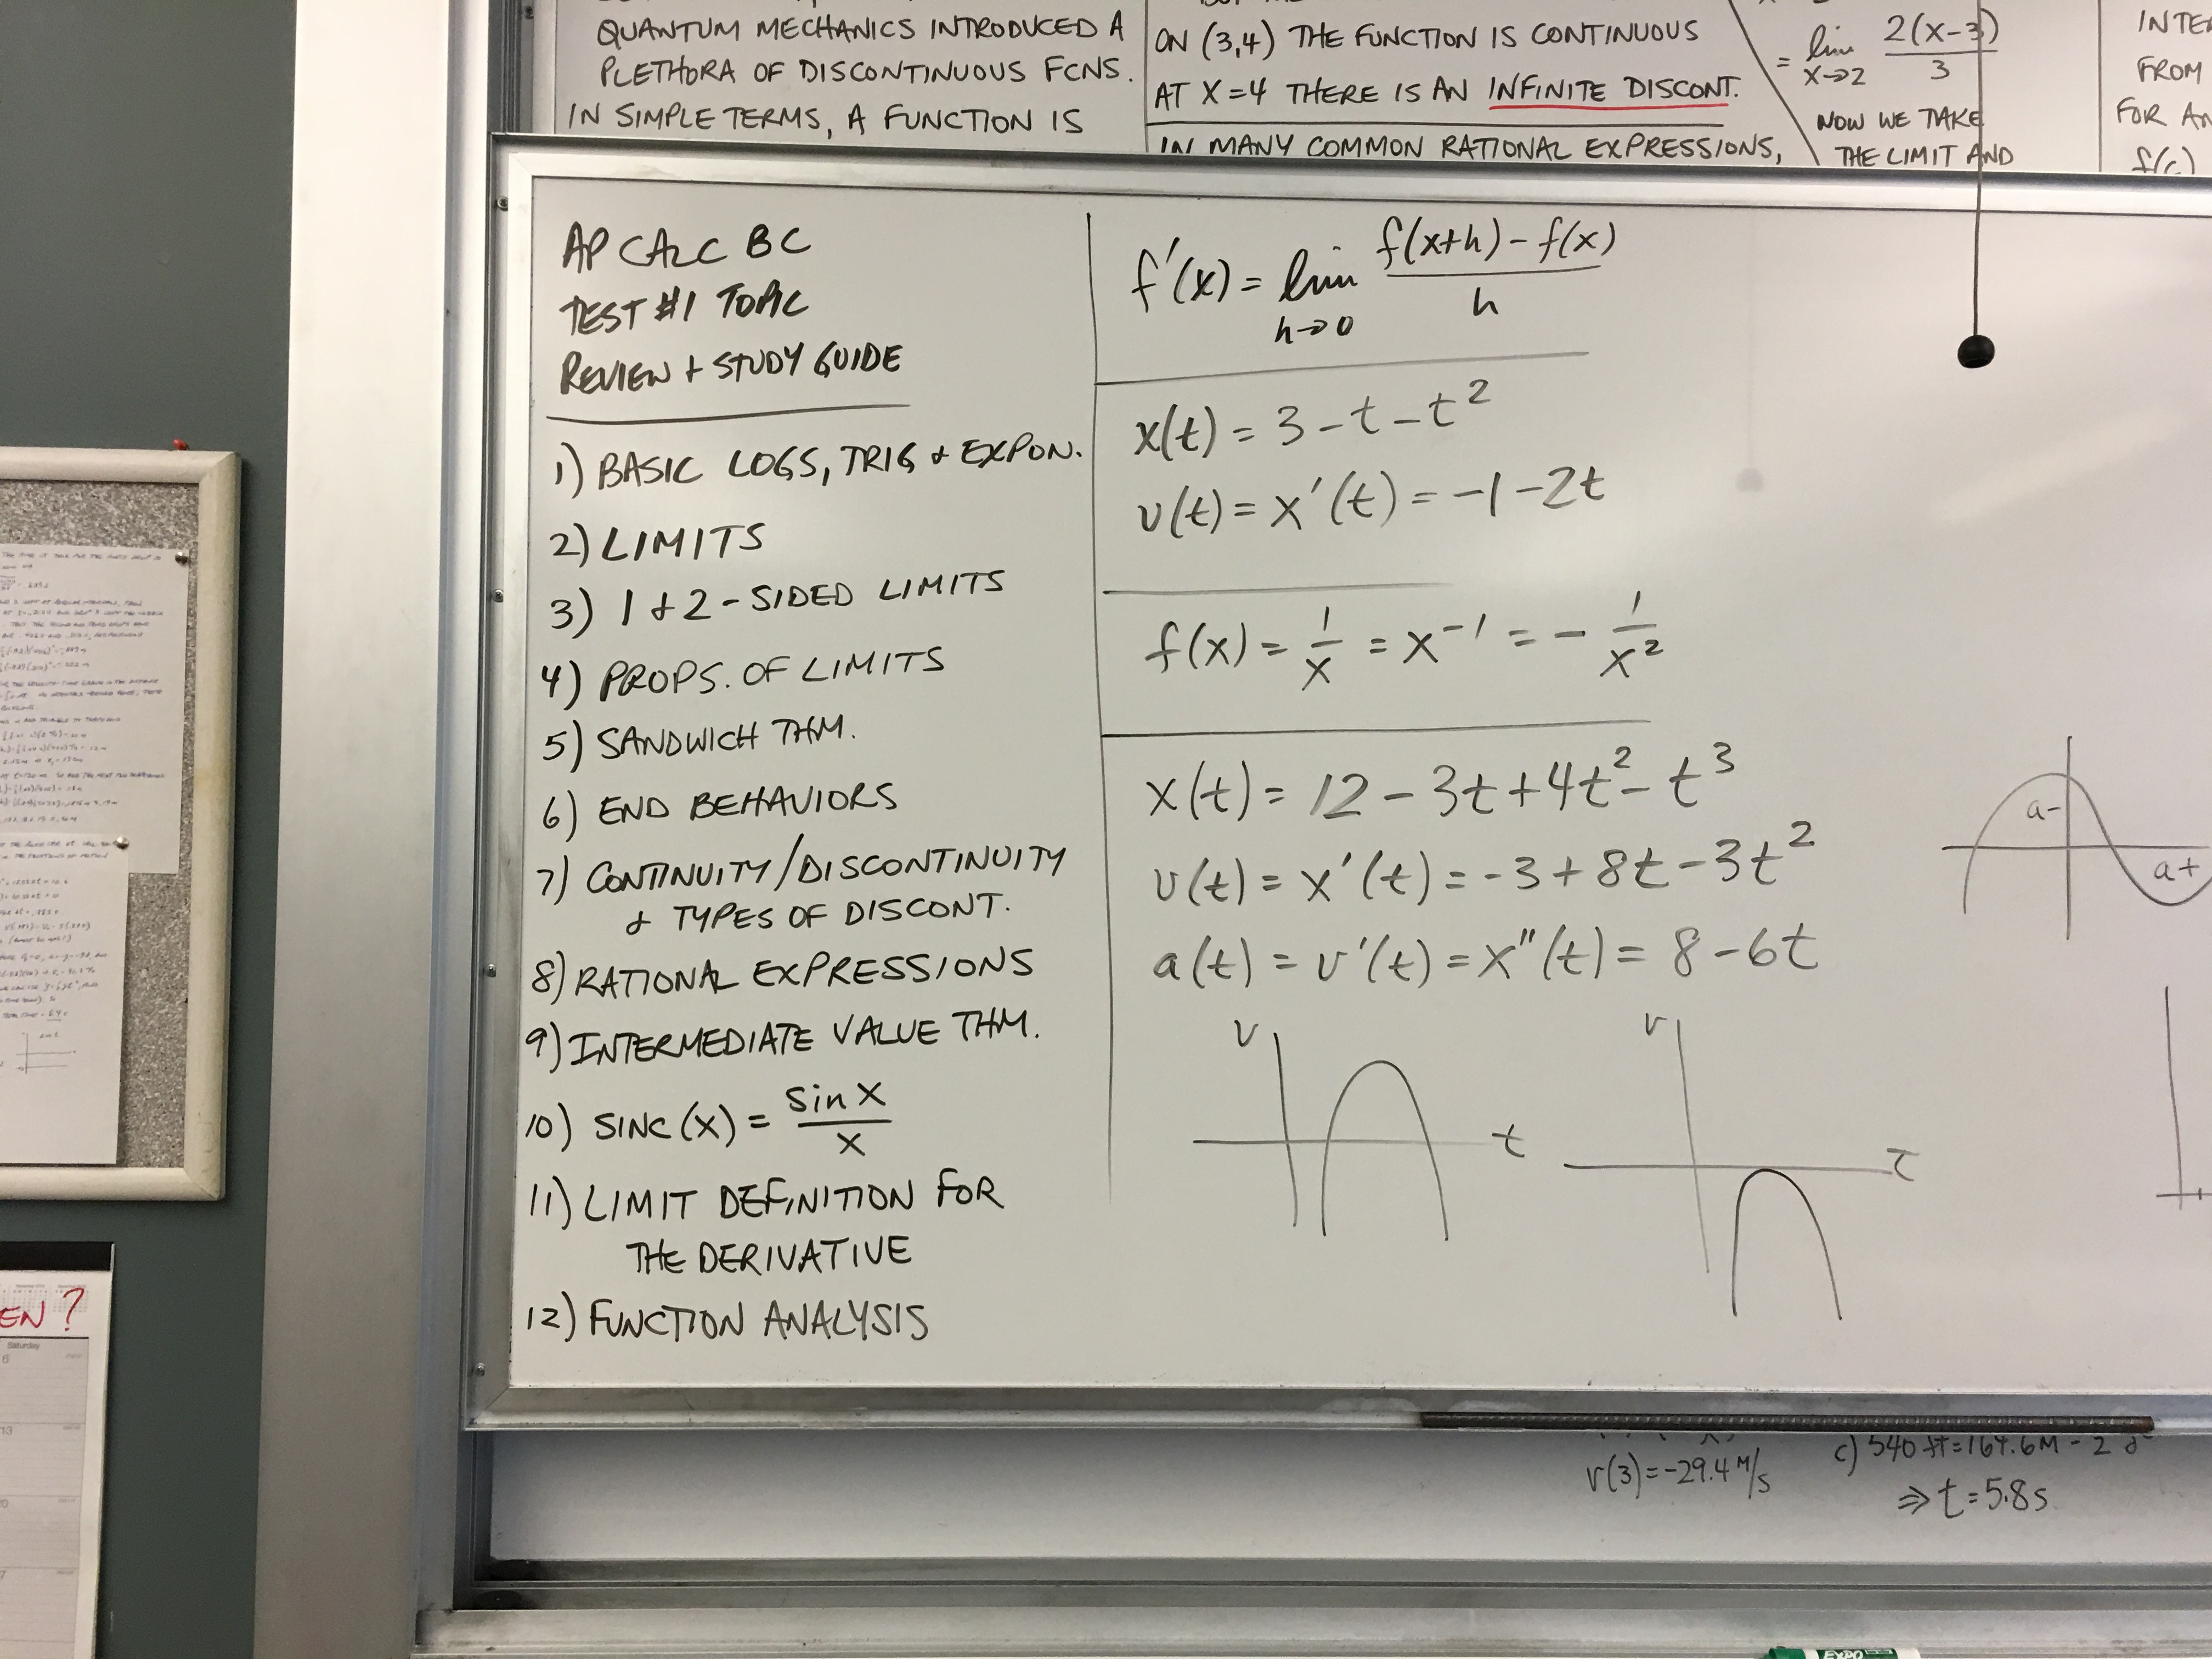 QUANTUM MECHANICS INTRODUCED A
PLETHORA OF DISCONTINUOUS FCNS.
IN SIMPLE TERMS, A FUNCTION IS
ON (3,4) THE FUNCTION IS CONTINUOUS
AT X=4 THERE IS AN INFINITE DISCONT.
IN MANY COMMON RATIONAL EXPRESSIONS,
= lim x→2 2(x-3)/3
NOW WE TAKE
THE LIMIT AND
INTE
FROM
FOR AN
f(c)
AP CALC BC
TEST #1 TOPIC
REVIEW + STUDY GUIDE
1) BASIC LOGS, TRIG + EXPON.
2) LIMITS
3) 1 + 2-SIDED LIMITS
4) PROPS. OF LIMITS
5) SANDWICH THM.
6) END BEHAVIORS
7) CONTINUITY/DISCONTINUITY
+ TYPES OF DISCONT.
8) RATIONAL EXPRESSIONS
9) INTERMEDIATE VALUE THM.
10) SINC(X) = sin X / X
11) LIMIT DEFINITION FOR
THE DERIVATIVE
12) FUNCTION ANALYSIS
f'(x) = lim h→0 f(x+h) - f(x) / h
x(t) = 3 - t - t²
v(t) = x'(t) = -1 - 2t
f(x) = 1/x = x⁻¹ = - 1/x²
x(t) = 12 - 3t + 4t² - t³
v(t) = x'(t) = -3 + 8t - 3t²
a(t) = v'(t) = x"(t) = 8 - 6t
v
t
v
t
a-
a+
v(3) = -29.4 M/s
c) 540 ft = 164.6M
⇒ t = 5.8s
EN?
Saturday
6
13
EXPO